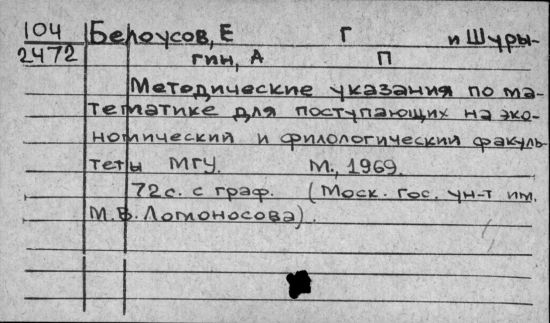 104 Белоусов, Е Г и Шуры-
2472 гин, А П
Методические указания по ма-
тематике для поступающих на эко-
номический и филологический факуль-
теты МГУ. М., 1969.
72с. с граф. (Моск. гос. ун-т им.
М.В. Ломоносова).